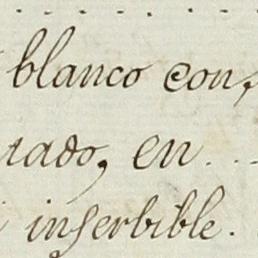 blanco con,
rado, en...
inserbible.